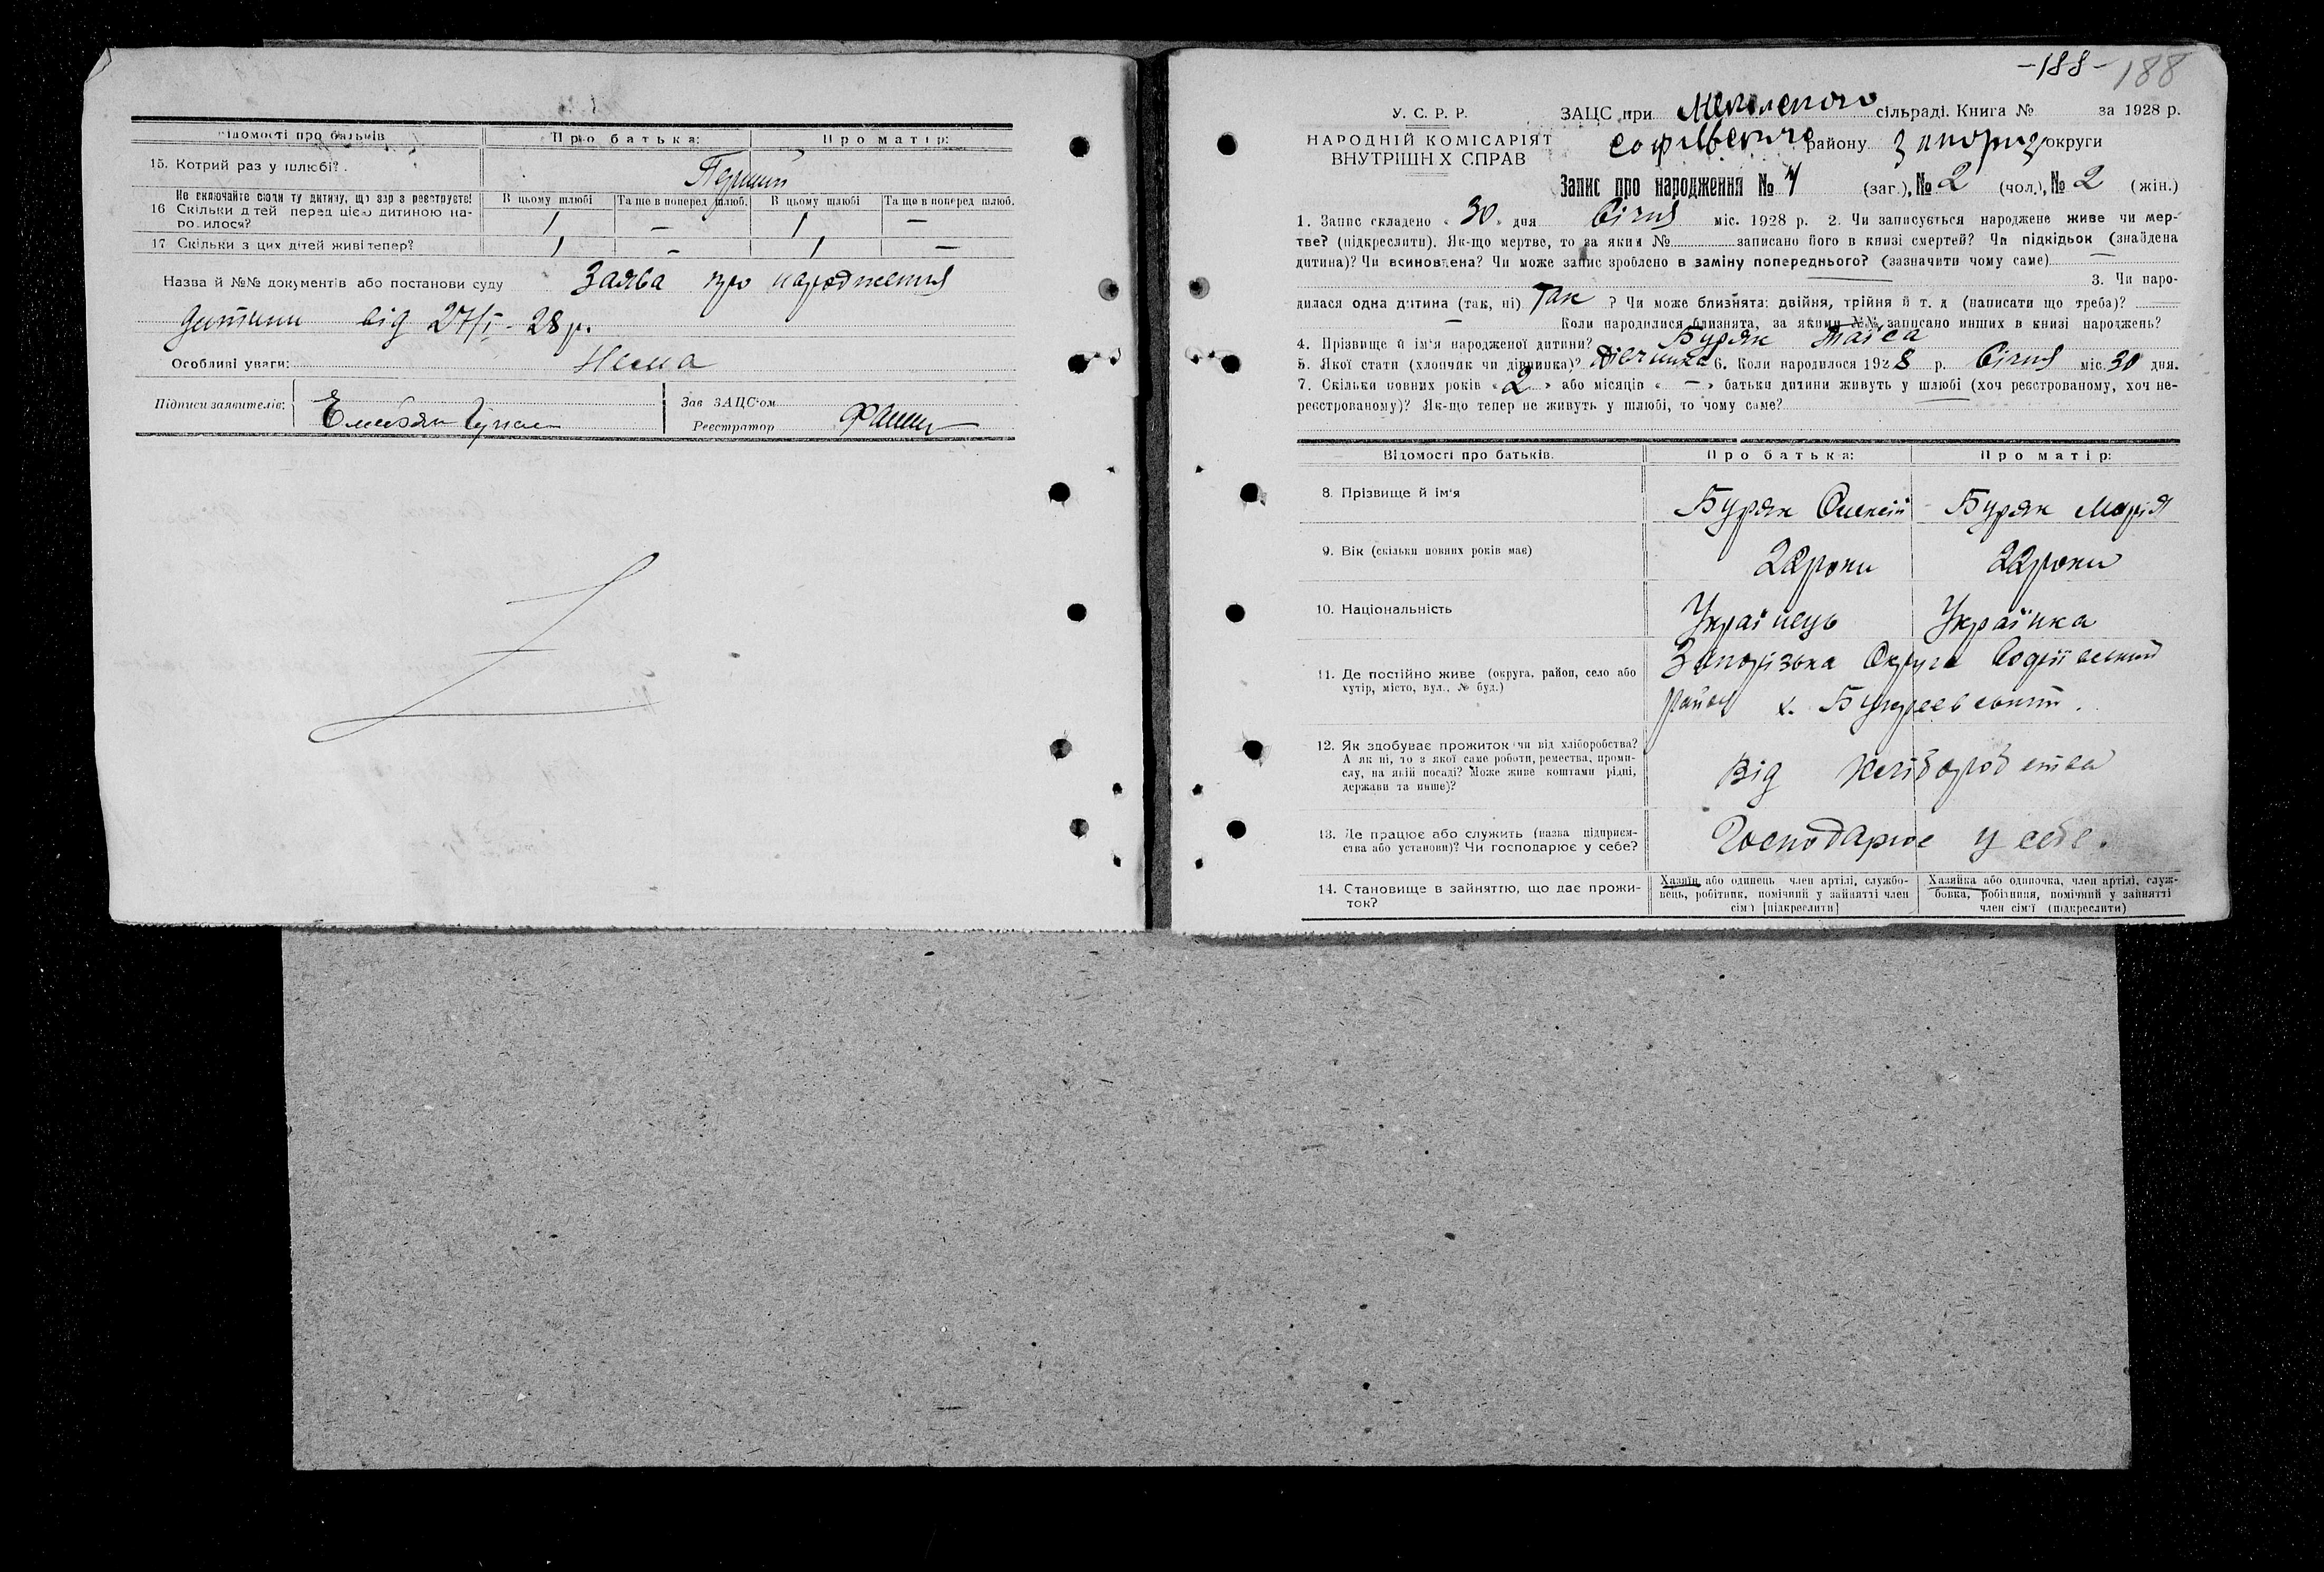 Відомості про батьків
Про батька:
Про матір:
15. Котрий раз у шлюбі?
Перший
Не включайте сюди ту дитину, що зараз реєструєте!
16 Скільки дітей перед цією дитиною народилося?
В цьому шлюбі
Та ще в поперед шлюб.
В цьому шлюбі
Та ще в поперед шлюб.
1 — 1 —
17 Скільки з цих дітей живі тепер?
1 — 1 —
Назва й №№ документів або постанови суду Заява про народження
дитини від 27/I - 28 р.
Особливі уваги: Нема
Підписи заявителів:
Зав ЗАЦС'ом
Реєстратор
-188- 188
У. С. Р. Р.
НАРОДНІЙ КОМІСАРІЯТ
ВНУТРІШНІХ СПРАВ
ЗАЦС при сільраді. Книга № за 1928 р.
району Запоріз округи
Запис про народження № 4 (заг.), № 2 (чол.), № 2 (жін.)
1. Запис складено „30„ дня Січня міс. 1928 р. 2. Чи записується народжене живе чи мер-
тве? (підкреслити). Як-що мертве, то за яким № записано його в книзі смертей? Чи підкідьок (знайдена
дитина)? Чи всиновлена? Чи може запис зроблено в заміну попереднього? (зазначити чому саме) —
3. Чи наро-
дилася одна дитина (так, ні) Так ? Чи може близнята: двійня, трійня й т. д (написати що треба)?
— Коли народилися близнята, за якими №№ записано инших в книзі народжень?
4. Прізвище й ім'я народженої дитини? Буряк Таїса
5. Якої стати (хлопчик чи дівчинка)? Дівчинка 6. Коли народилося 1928 р. Січня міс. 30 дня.
7. Скільки повних років „2„ або місяців „—„ батьки дитини живуть у шлюбі (хоч реєстрованому, хоч не-
реєстрованому)? Як-що тепер не живуть у шлюбі, то чому саме?
Відомості про батьків.
Про батька:
Про матір:
8. Прізвище й ім'я
Буряк Олексій
Буряк Марія
9. Вік (скільки повних років має)
22 роки
22 роки
10. Національність
Українець
Українка
11. Де постійно живе (округа, район, село або
хутір, місто, вул., № буд.)
Запорізька Округа Софіївський
район х.
12. Як здобуває прожиток чи від хліборобства?
А як ні, то з якої саме роботи, ремества, проми-
слу, на якій посаді? Може живе коштами рідні,
держави та инше)?
Від хліборобства
13. Де працює або служить (назва підприєм-
ства або установи)? Чи господарює у себе?
Господарює у себе.
14. Становище в зайняттю, що дає прожи-
ток?
Хазяїн або одинець член артілі, службо-
вець, робітник, помічний у зайнятті член
сім'ї [підкреслити]
Хазяйка або одиночка, член артілі, служ-
бовка, робітниця, помічний у зайнятті
член сім'ї (підкреслити)